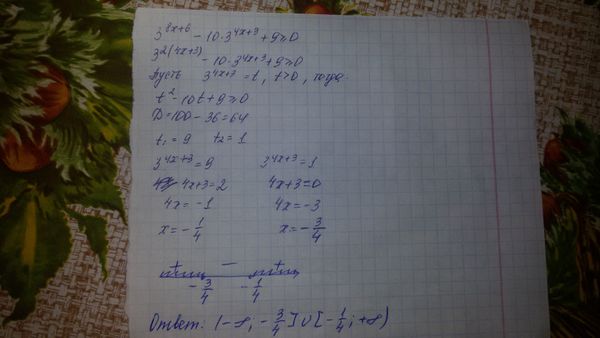 3^{8x+6} - 10·3^{4x+3} + 9 ≥ 0
3^{2(4x+3)} - 10·3^{4x+3} + 9 ≥ 0
Пусть 3^{4x+3} = t, t>0, тогда
t² - 10t + 9 ≥ 0
D = 100 - 36 = 64
t₁ = 9 t₂ = 1
3^{4x+3} = 9 3^{4x+3} = 1
4x+3 = 2 4x+3 = 0
4x = -1 4x = -3
x = -1/4 x = -3/4
+ − +
-3/4 -1/4
Ответ: (-∞; -3/4] ∪ [-1/4; +∞)